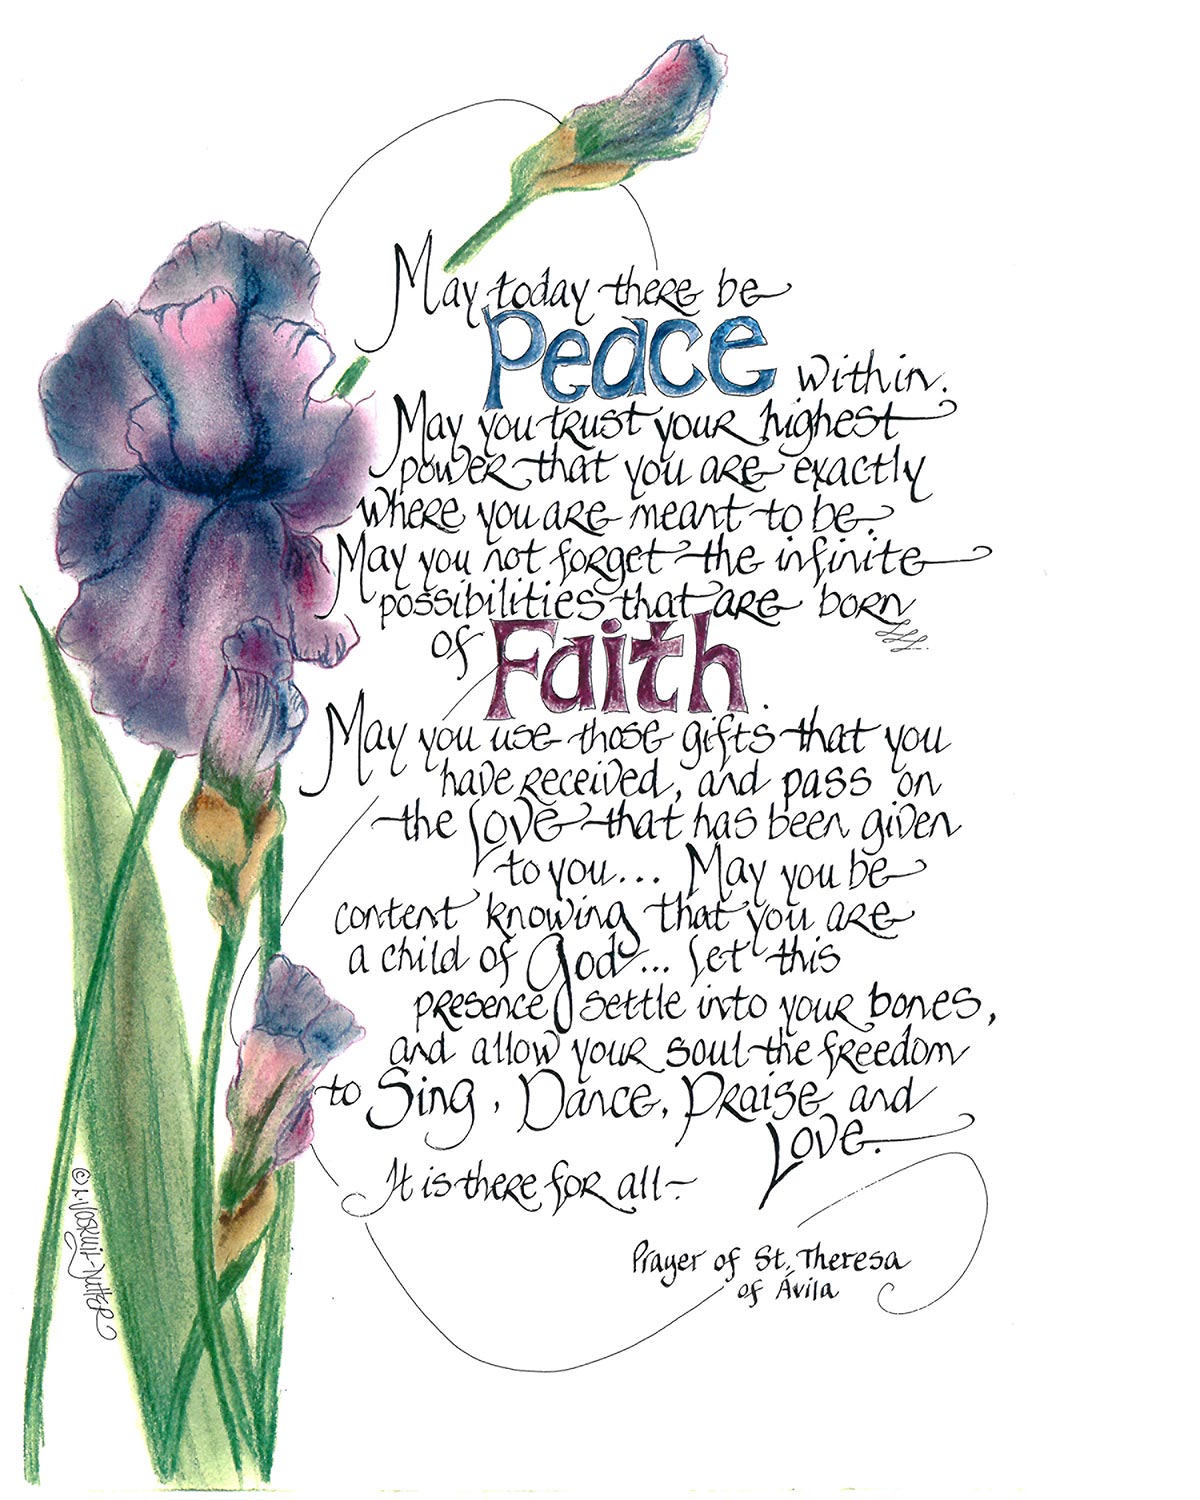 May today there be
Peace within.
May you trust your highest
power that you are exactly
where you are meant to be.
May you not forget the infinite
possibilities that are born
of Faith.
May you use those gifts that you
have received, and pass on
the Love that has been given
to you... May you be
content knowing that you are
a child of God... Let this
presence settle into your bones,
and allow your soul the freedom
to Sing, Dance, Praise and
Love.
It is there for all~
Prayer of St. Theresa
of Ávila